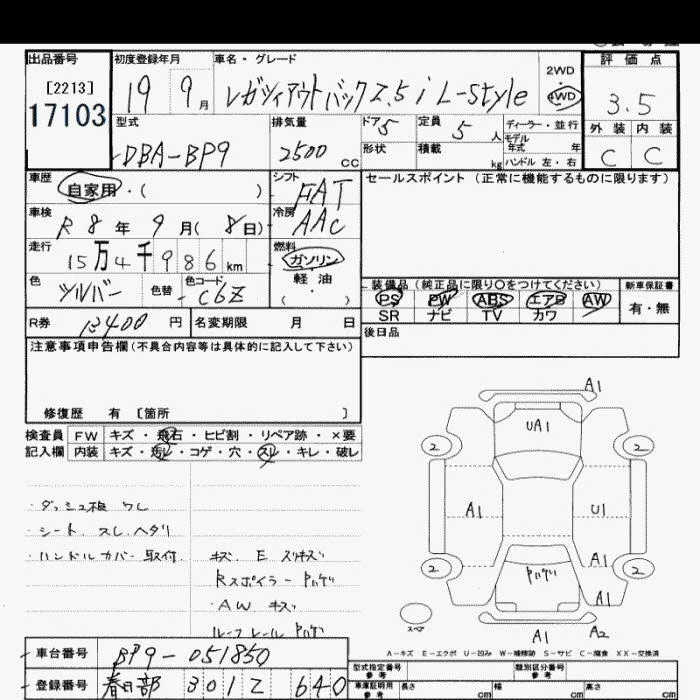 出品番号 初度登録年月 車名・グレード 2WD 評価点
[2213] 19 9月 レガシィアウトバック2.5i L-Style 4WD 3.5
17103 型式 排気量 ドア 5 定員 5人 ディーラー・並行 外装 内装
DBA-BP9 2500cc 形状 積載 kg モデル年式 年 C C
ハンドル 左・右
車歴 自家用・( ) シフト FAT セールスポイント (正常に機能するものに限ります)
車検 R8年9月(8日) 冷房 AAC
走行 15万4千986km 燃料 ガソリン
軽・油
( )
色 シルバー 色替 色コード C6Z 装備品 (純正品に限り〇をつけてください) 新車保証書
PS PW ABS エアB AW 有・無
SR ナビ TV カワ
R券 13400円 名変期限 月 日 後日品
注意事項申告欄(不具合内容等は具体的に記入して下さい)
修復歴 有 [箇所 ]
検査員 FW キズ・飛石・ヒビ割・リペア跡・×要
記入欄 内装 キズ・汚レ・コゲ・穴・スレ・キレ・破レ
・ダッシュ板 ワレ
・シート スレ ヘタリ
・ハンドルカバー取付
キズ E スリキズ
Rスポイラー ハゲ
・AW キズ
ルーフレール ハゲ
A1
UA1
2 2
A1 U1
A1
2 ハゲ 2
A1
スペア
A1 A2
A-キズ E-エクボ U-凹み W-補修跡 S-サビ C-腐食 XX-交換済
車台番号 BP9-051850
登録番号 春日部 301 Z 640
型式指定番号 参考 類別区分番号 参考
車庫証明用 参考 長さ cm 幅 cm 高さ cm